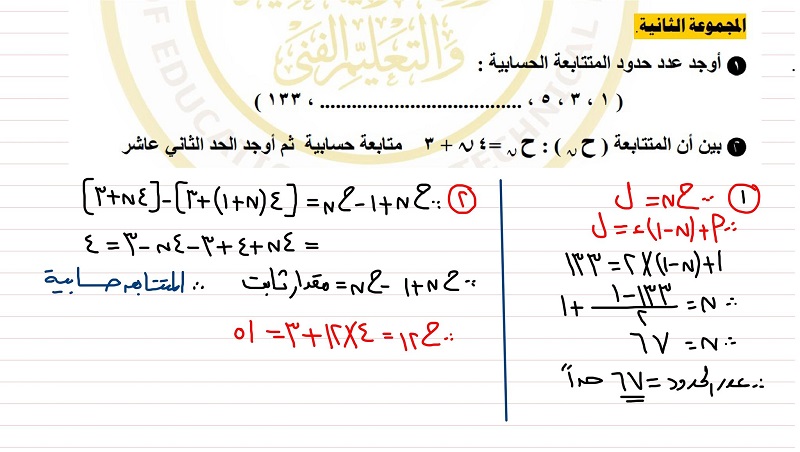 المجموعة الثانية.
❶ أوجد عدد حدود المتتابعة الحسابية :
( ١ ، ٣ ، ٥ ، ...................................... ، ١٣٣ )
❷ بين أن المتتابعة ( ح ن ) : ح ن = ٤ ن + ٣ متتابعة حسابية ثم أوجد الحد الثاني عاشر
① ∵ ح ن = ل
∴ م + (ن - ١) ء = ل
١ + (ن - ١) × ٢ = ١٣٣
∴ ن = (١٣٣ - ١) / ٢ + ١
∴ ن = ٦٧
∴ عدد الحدود = ٦٧ حداً
② ∵ ح ن+١ - ح ن = [٤(ن+١) + ٣] - [٤ن + ٣]
= ٤ن + ٤ + ٣ - ٤ن - ٣ = ٤
∵ ح ن+١ - ح ن = مقدار ثابت ∴ المتتابعة حسابية
∴ ح ١٢ = ٤ × ١٢ + ٣ = ٥١
والتعليم الفني
OF EDUCATION
TECHNICAL